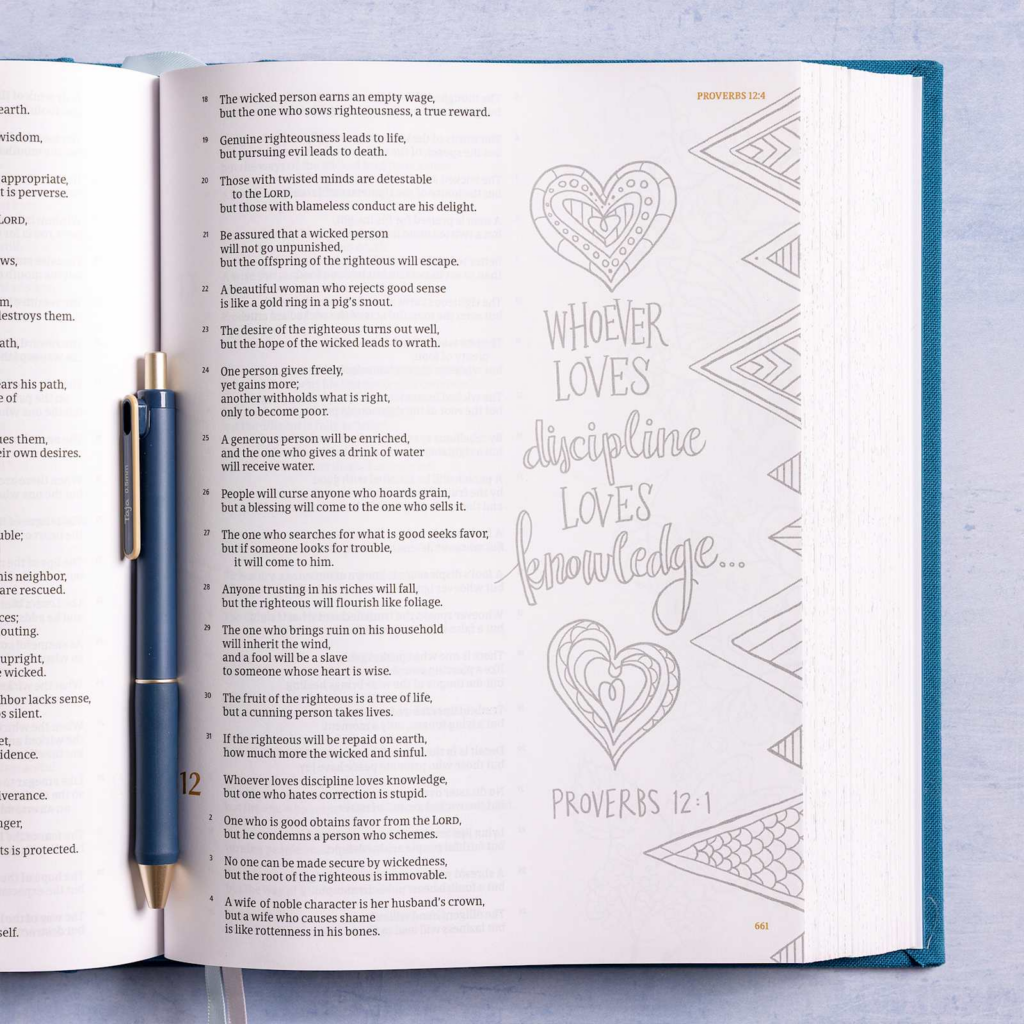 earth.
wisdom,
appropriate,
t is perverse.
LORD,
ws,
m,
destroys them.
ath,
ears his path,
e of
ues them,
eir own desires.
uble;
his neighbor,
are rescued.
ces;
outing.
upright,
e wicked.
hbor lacks sense,
s silent.
et,
idence.
iverance.
nger,
ts is protected.
self.
18 The wicked person earns an empty wage,
but the one who sows righteousness, a true reward.
19 Genuine righteousness leads to life,
but pursuing evil leads to death.
20 Those with twisted minds are detestable
to the LORD,
but those with blameless conduct are his delight.
21 Be assured that a wicked person
will not go unpunished,
but the offspring of the righteous will escape.
22 A beautiful woman who rejects good sense
is like a gold ring in a pig's snout.
23 The desire of the righteous turns out well,
but the hope of the wicked leads to wrath.
24 One person gives freely,
yet gains more;
another withholds what is right,
only to become poor.
25 A generous person will be enriched,
and the one who gives a drink of water
will receive water.
26 People will curse anyone who hoards grain,
but a blessing will come to the one who sells it.
27 The one who searches for what is good seeks favor,
but if someone looks for trouble,
it will come to him.
28 Anyone trusting in his riches will fall,
but the righteous will flourish like foliage.
29 The one who brings ruin on his household
will inherit the wind,
and a fool will be a slave
to someone whose heart is wise.
30 The fruit of the righteous is a tree of life,
but a cunning person takes lives.
31 If the righteous will be repaid on earth,
how much more the wicked and sinful.
12 Whoever loves discipline loves knowledge,
but one who hates correction is stupid.
2 One who is good obtains favor from the LORD,
but he condemns a person who schemes.
3 No one can be made secure by wickedness,
but the root of the righteous is immovable.
4 A wife of noble character is her husband's crown,
but a wife who causes shame
is like rottenness in his bones.
PROVERBS 12:4
WHOEVER
LOVES
discipline
LOVES
knowledge...
PROVERBS 12:1
661